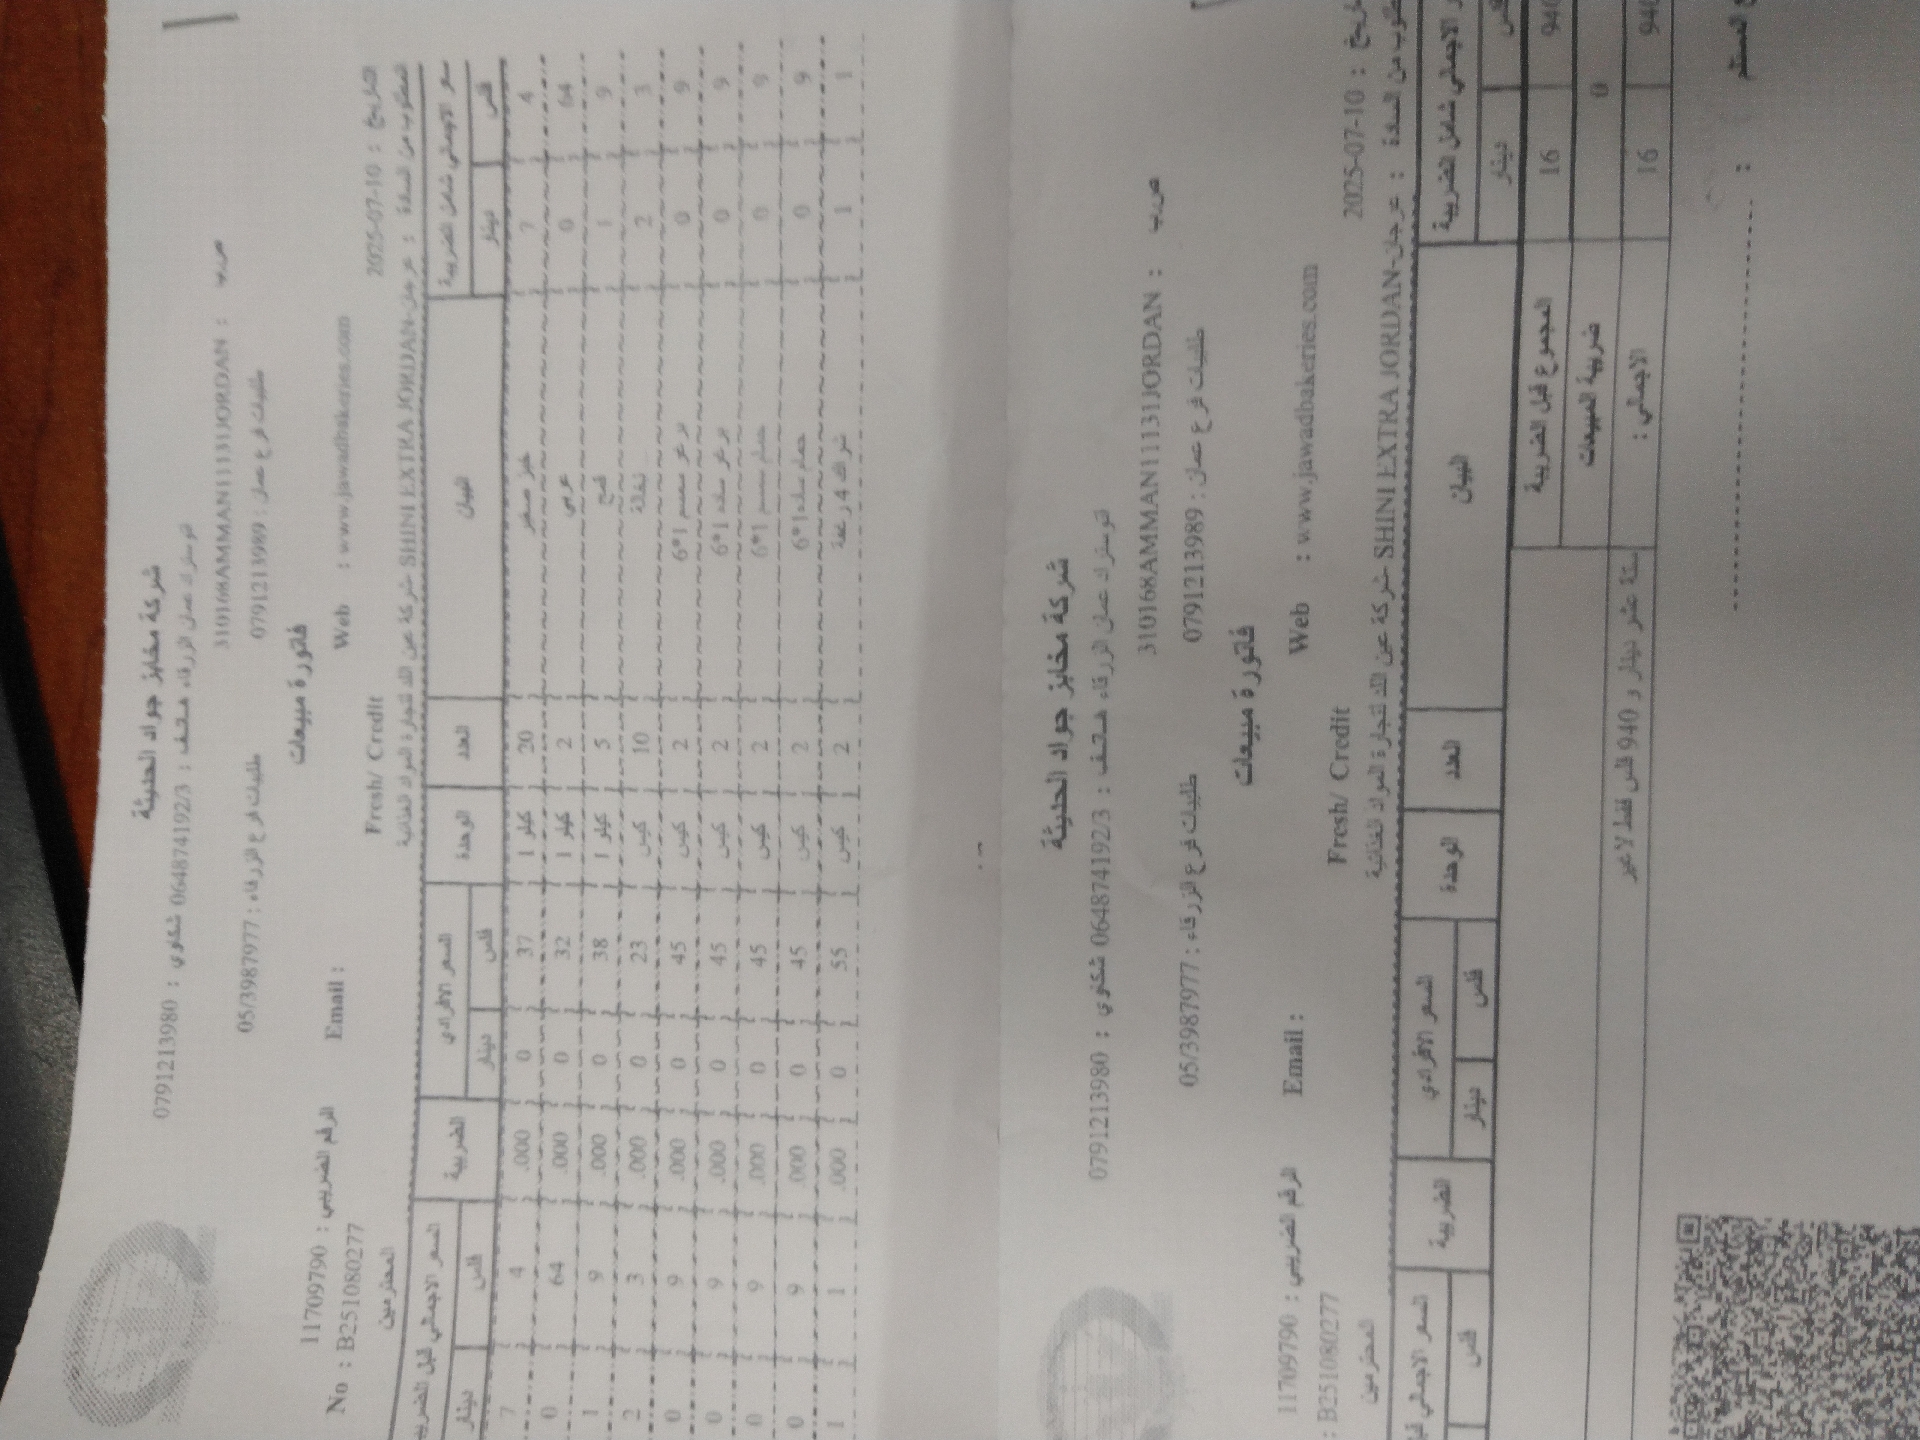 شركة مخابز جواد الحديثة
اتوستراد عمان الزرقاء هــاتــف : 064874192/3 شكاوي : 0791213980
ص.ب : 310168AMMAN11131JORDAN
طلبيات فرع عمان : 0791213989 طلبيات فرع الزرقاء : 05/3987977
فاتورة مبيعات
الرقم الضريبي : 11709790 Email : Web : www.jawadbakeries.com
No : B251080277 Fresh/ Credit التاريخ : 2025-07-10
المطلوب من السادة : عرجان-SHINI EXTRA JORDAN شركة عين الله لتجارة المواد الغذائية المحترمين
السعر الاجمالي شامل الضريبة البيان العدد الوحدة السعر الافرادي الضريبة السعر الاجمالي قبل الضريبة
فلس دينار فلس دينار فلس دينار
4 7 خبز صغير 20 كيلو 1 37 0 .000 4 7
64 0 عربي 2 كيلو 1 32 0 .000 64 0
9 1 قمح 5 كيلو 1 38 0 .000 9 1
3 2 نخالة 10 كيس 23 0 .000 3 2
9 0 برغر سمسم 1*6 2 كيس 45 0 .000 9 0
9 0 برغر ساده 1*6 2 كيس 45 0 .000 9 0
9 0 حمام سمسم 1*6 2 كيس 45 0 .000 9 0
9 0 حمام ساده 1*6 2 كيس 45 0 .000 9 0
1 1 شراك 4 رغفة 2 كيس 55 0 .000 1 1
شركة مخابز جواد الحديثة
اتوستراد عمان الزرقاء هــاتــف : 064874192/3 شكاوي : 0791213980
ص.ب : 310168AMMAN11131JORDAN
طلبيات فرع عمان : 0791213989 طلبيات فرع الزرقاء : 05/3987977
فاتورة مبيعات
الرقم الضريبي : 11709790 Email : Web : www.jawadbakeries.com
: B251080277 Fresh/ Credit 2025-07-10 :
من السادة : عرجان-SHINI EXTRA JORDAN شركة عين الله لتجارة المواد الغذائية المحترمين
الاجمالي شامل الضريبة البيان العدد الوحدة السعر الافرادي الضريبة السعر الاجمالي
دينار فلس دينار فلس
940 16 المجموع قبل الضريبة
0 ضريبة المبيعات
940 16 الاجمالي : ستة عشر دينار و 940 فلس فقط لا غير
المستلم :